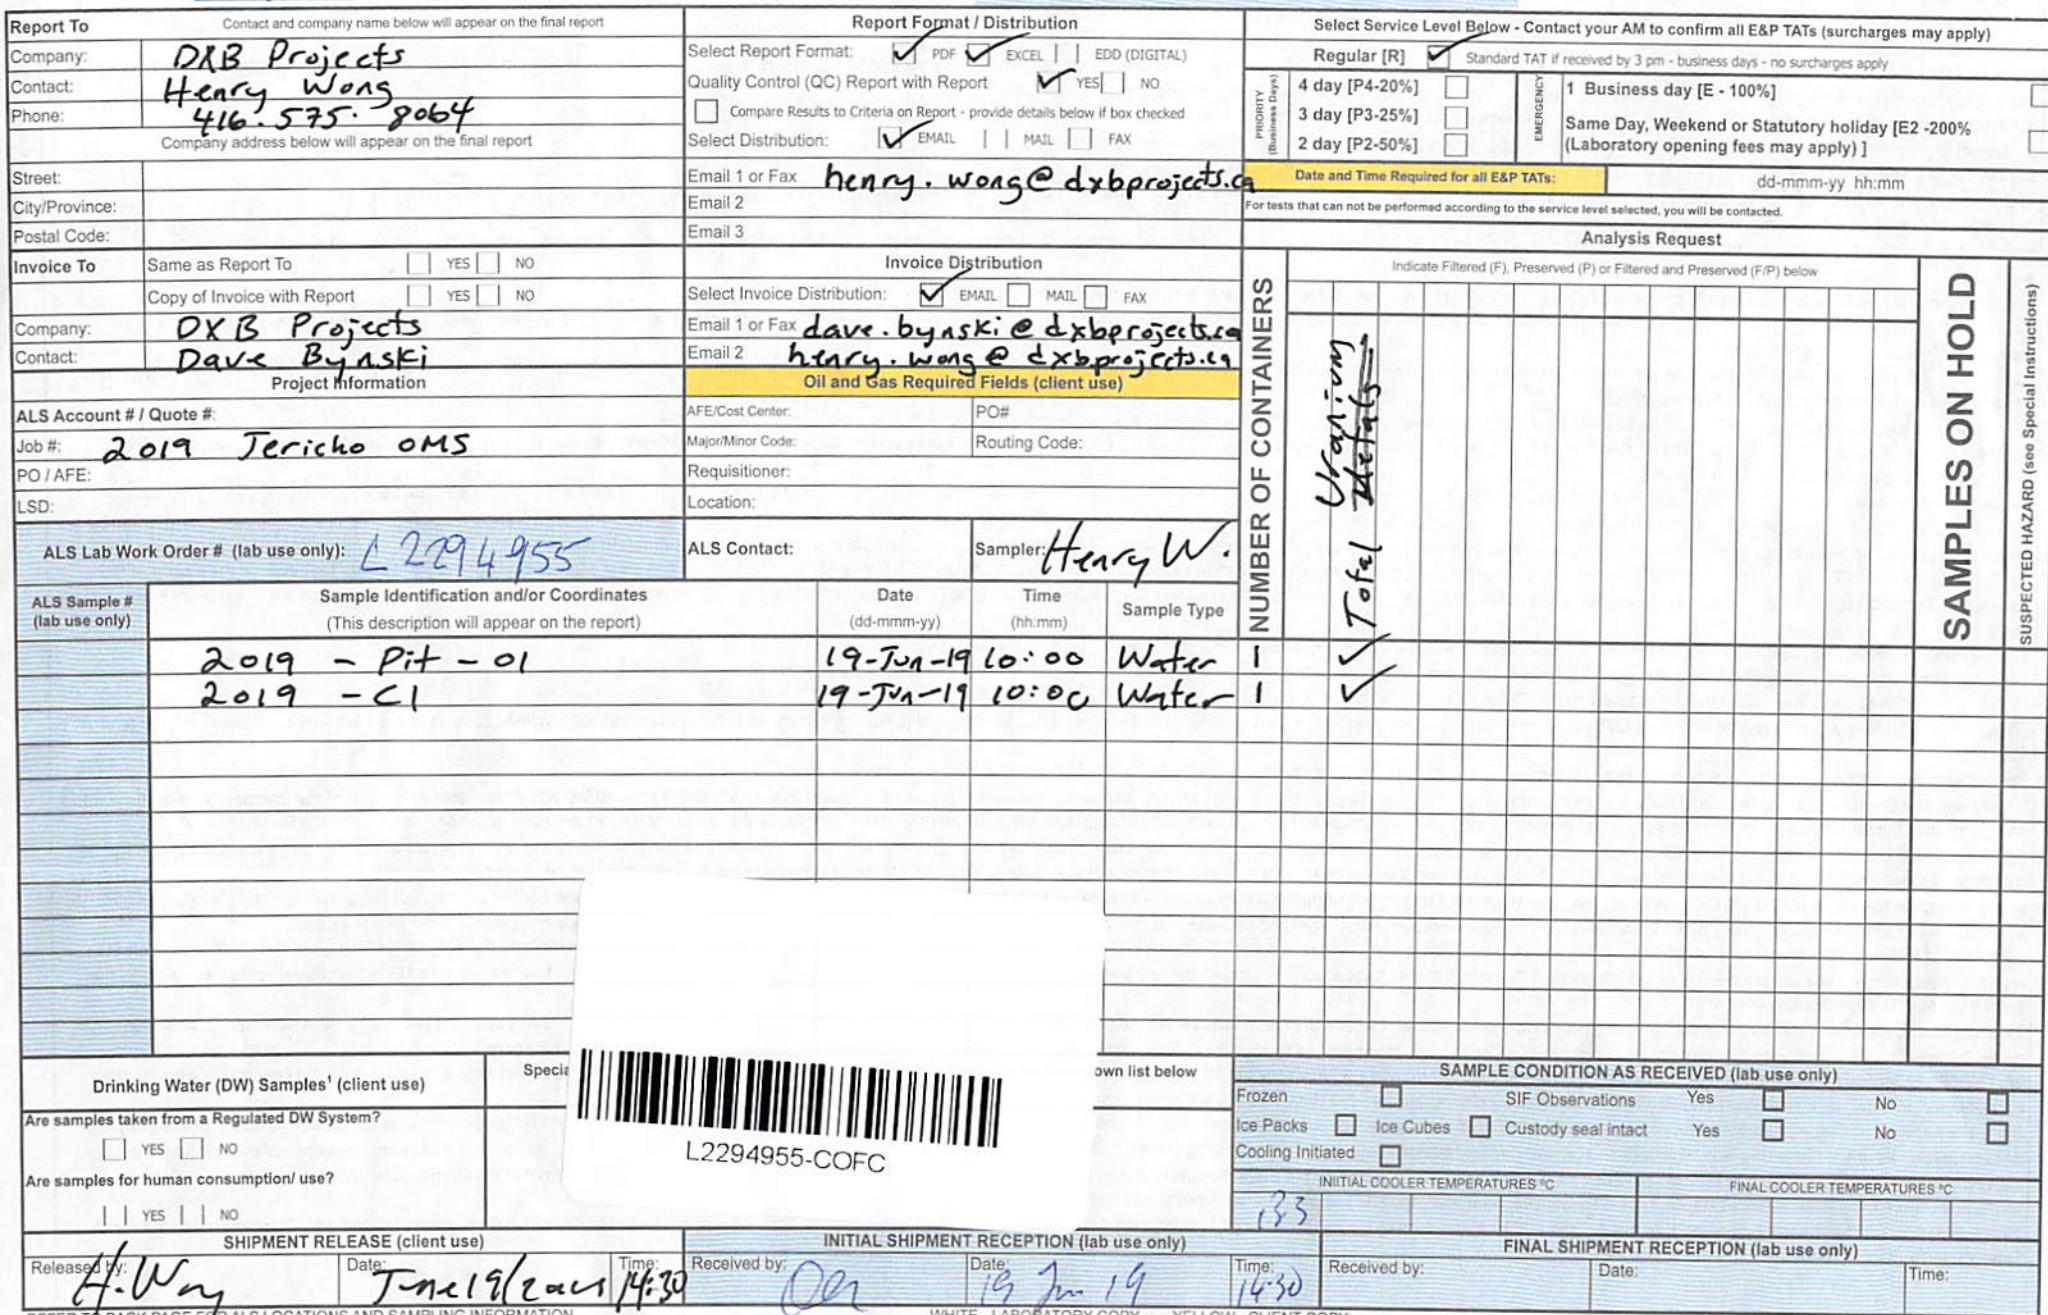 Report To Contact and company name below will appear on the final report
Company: DXB Projects
Contact: Henry Wong
Phone: 416.575.8064
Company address below will appear on the final report
Street:
City/Province:
Postal Code:
Invoice To Same as Report To YES NO
Copy of Invoice with Report YES NO
Company: DXB Projects
Contact: Dave Bynski
Project Information
ALS Account # / Quote #:
Job #: 2019 Jericho OMS
PO / AFE:
LSD:
ALS Lab Work Order # (lab use only): L2294955
Report Format / Distribution
Select Report Format: PDF EXCEL EDD (DIGITAL)
Quality Control (QC) Report with Report YES NO
Compare Results to Criteria on Report - provide details below if box checked
Select Distribution: EMAIL MAIL FAX
Email 1 or Fax henry.wong@dxbprojects.ca
Email 2
Email 3
Invoice Distribution
Select Invoice Distribution: EMAIL MAIL FAX
Email 1 or Fax dave.bynski@dxbprojects.ca
Email 2 henry.wong@dxbprojects.ca
Oil and Gas Required Fields (client use)
AFE/Cost Center: PO#
Major/Minor Code: Routing Code:
Requisitioner:
Location:
ALS Contact: Sampler: Henry W.
Select Service Level Below - Contact your AM to confirm all E&P TATs (surcharges may apply)
Regular [R] Standard TAT if received by 3 pm - business days - no surcharges apply
PRIORITY (Business Days)
4 day [P4-20%]
3 day [P3-25%]
2 day [P2-50%]
EMERGENCY
1 Business day [E - 100%]
Same Day, Weekend or Statutory holiday [E2 -200%
(Laboratory opening fees may apply) ]
Date and Time Required for all E&P TATs: dd-mmm-yy hh:mm
For tests that can not be performed according to the service level selected, you will be contacted.
Analysis Request
NUMBER OF CONTAINERS
Indicate Filtered (F), Preserved (P) or Filtered and Preserved (F/P) below
Total Uranium
SAMPLES ON HOLD
SUSPECTED HAZARD (see Special Instructions)
ALS Sample # (lab use only)
Sample Identification and/or Coordinates
(This description will appear on the report)
Date (dd-mmm-yy)
Time (hh:mm)
Sample Type
2019 - Pit - 01 19-Jun-19 10:00 Water 1
2019 - C1 19-Jun-19 10:00 Water 1
Drinking Water (DW) Samples¹ (client use)
Are samples taken from a Regulated DW System?
YES NO
Are samples for human consumption/ use?
YES NO
own list below
L2294955-COFC
SAMPLE CONDITION AS RECEIVED (lab use only)
Frozen SIF Observations Yes No
Ice Packs Ice Cubes Custody seal intact Yes No
Cooling Initiated
INIITIAL COOLER TEMPERATURES ºC FINAL COOLER TEMPERATURES ºC
SHIPMENT RELEASE (client use)
Released by: H. Wong Date: June 19/2019 Time: 14:30
INITIAL SHIPMENT RECEPTION (lab use only)
Received by: Date: 19 Jun 19 Time: 14:30
FINAL SHIPMENT RECEPTION (lab use only)
Received by: Date: Time:
REFER TO BACK PAGE FOR ALS LOCATIONS AND SAMPLING INFORMATION WHITE - LABORATORY COPY YELLOW - CLIENT COPY